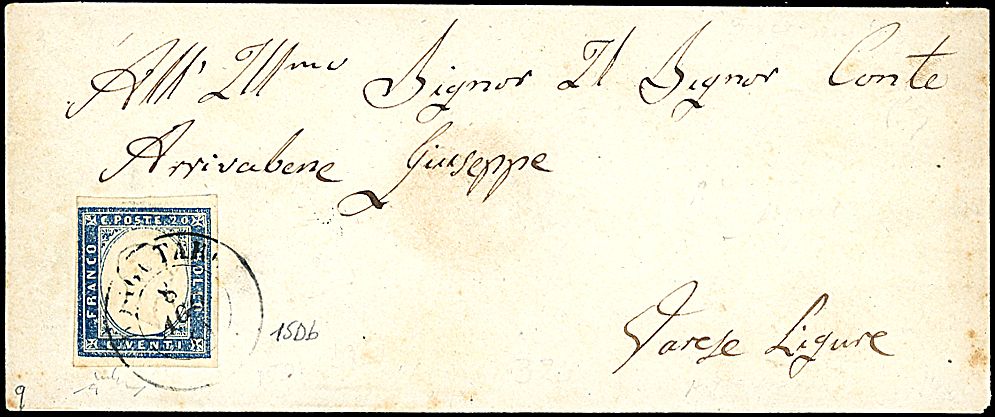 All' Ill.mo Signor Il Signor Conte
Arrivabene Giuseppe
C. POSTE 20
FRANCO
BOLLO
VENTI
TAR
8
AG
15Db
Varese Ligure
9